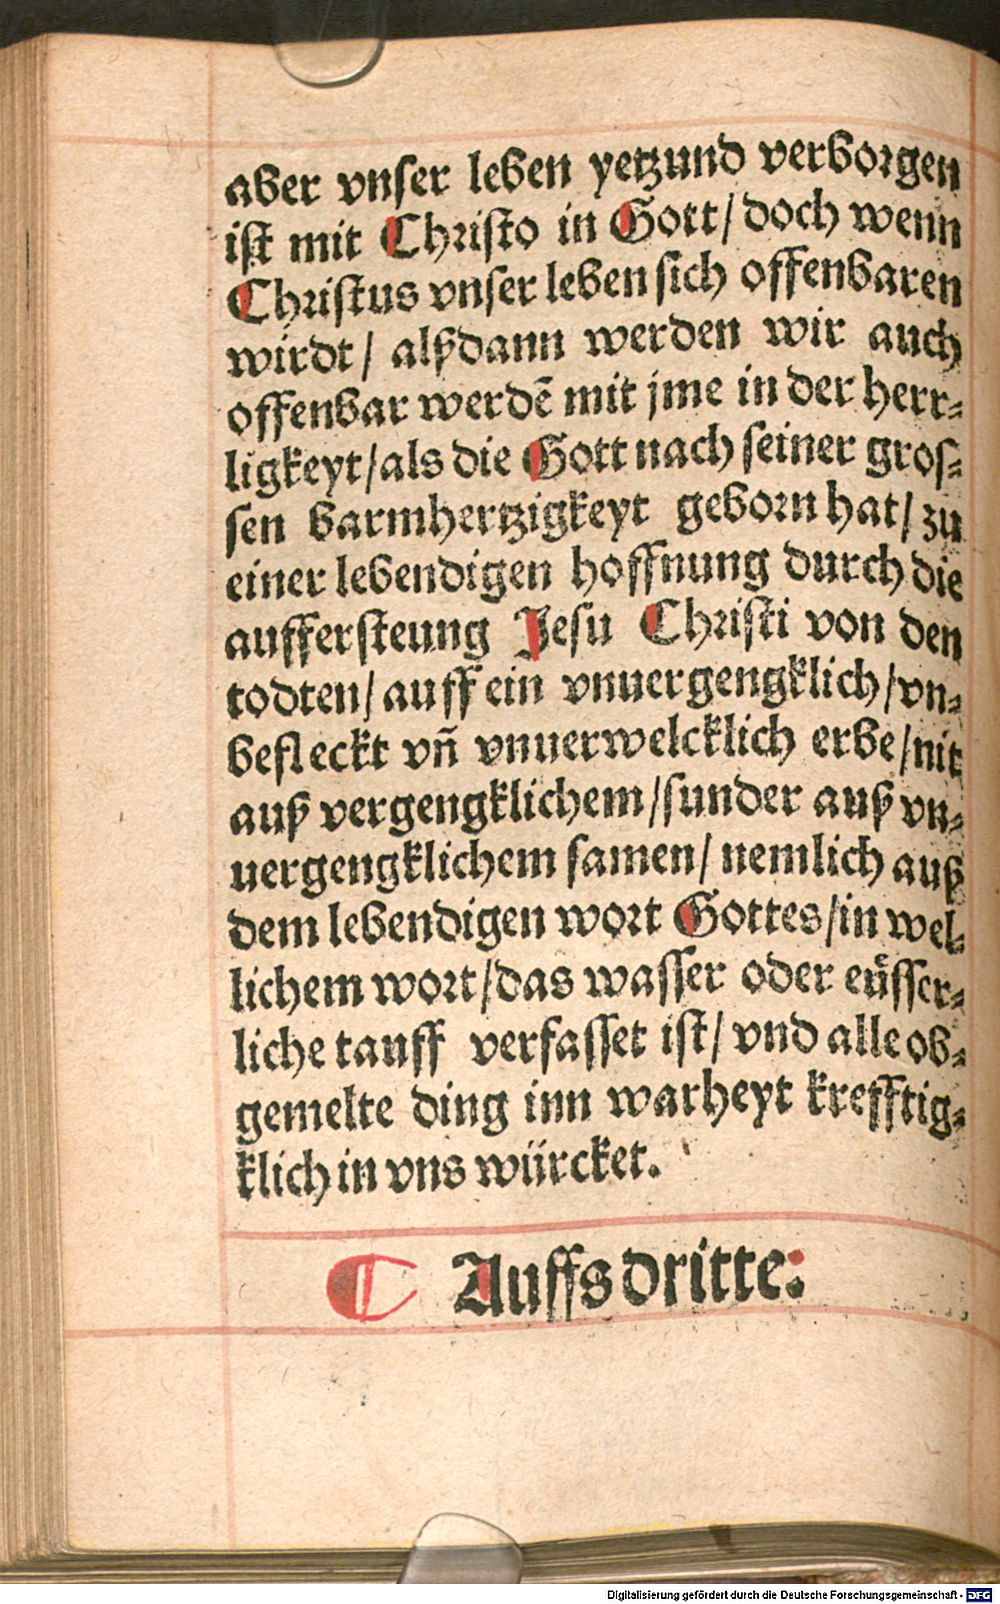 aber vnser leben yetzund verborgen
ist mit Christo in Gott/ doch wenn
Christus vnser leben sich offenbaren
wirdt/ alßdann werden wir auch
offenbar werdē mit jme in der herr⸗
ligkeyt/als die Gott nach seiner gros⸗
sen barmhertzigkeyt geborn hat/ zu
einer lebendigen hoffnung durch die
auffersteung Jesu Christi von den
todten/ auff ein vnuergengklich/vn⸗
befleckt vñ vnuerwelcklich erbe/nit
auß vergengklichem/sunder auß vn⸗
uergengklichem samen/ nemlich auß
dem lebendigen wort Gottes/in wel⸗
lichem wort/das wasser oder eüsser⸗
liche tauff verfasset ist/ vnd alle ob⸗
gemelte ding inn warheyt krefftig⸗
klich in vns würcket.
⸿ Auffs dritte:
Digitalisierung gefördert durch die Deutsche Forschungsgemeinschaft - DFG